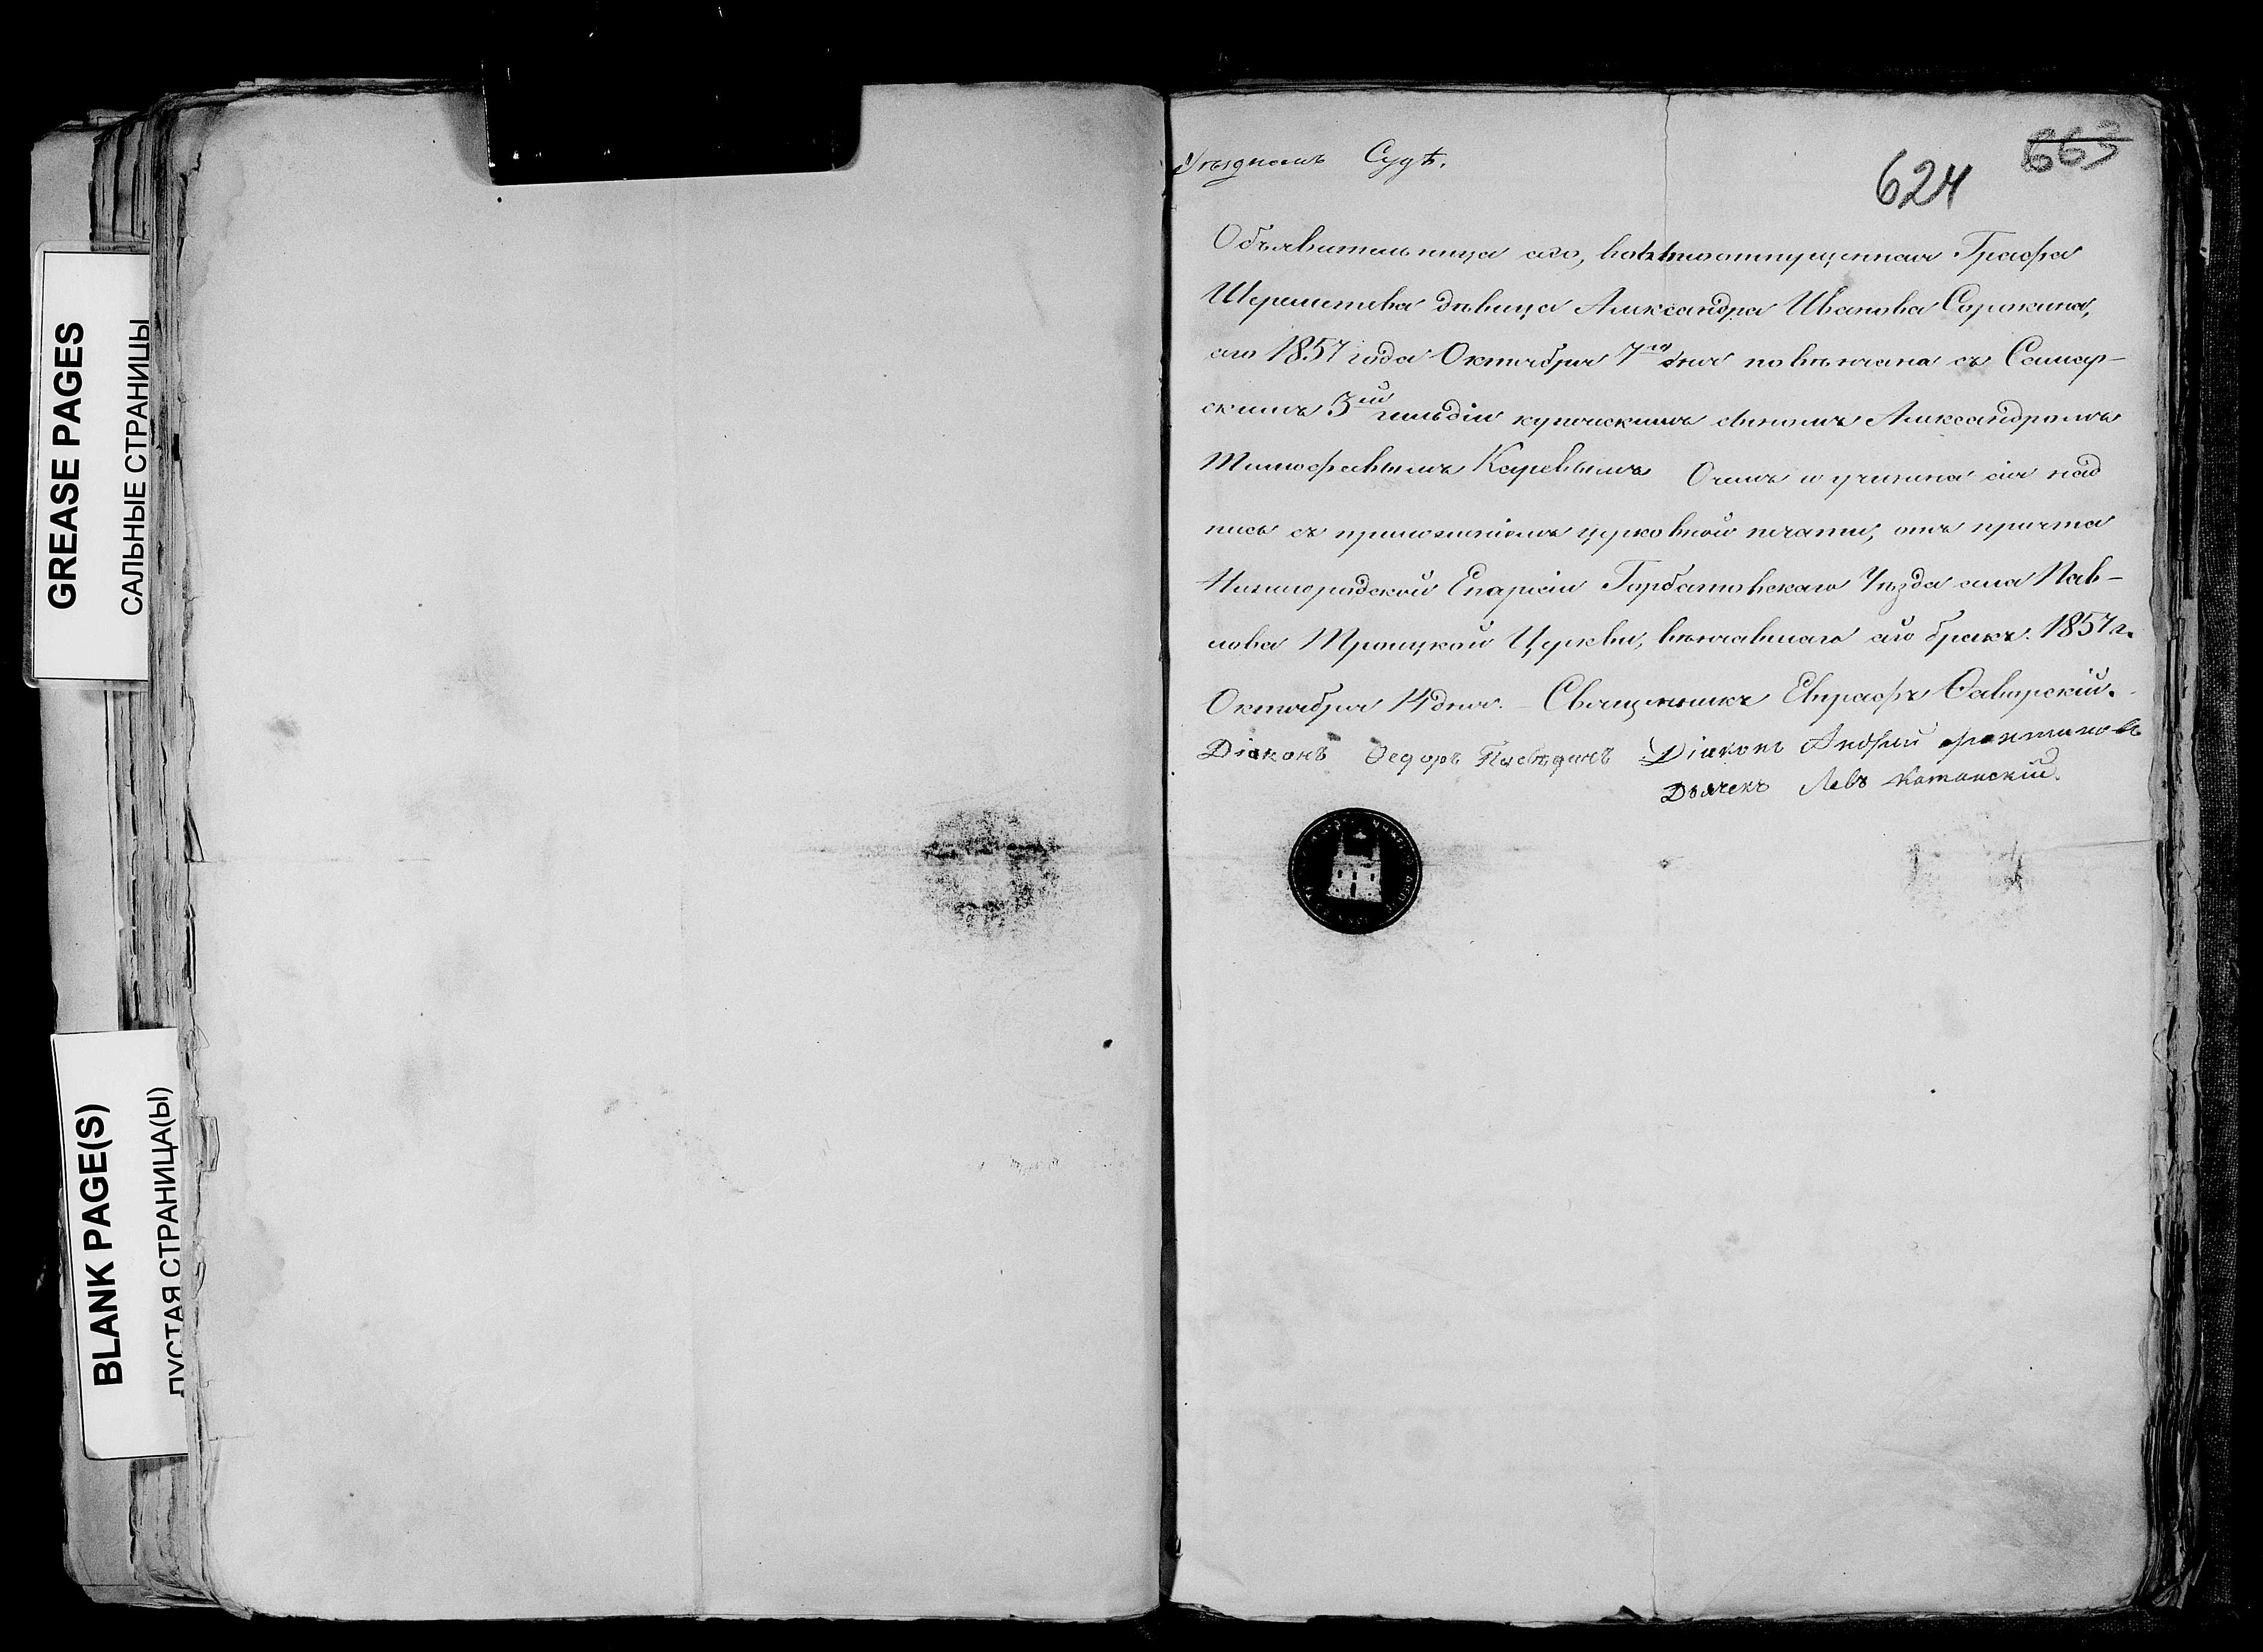 GREASE PAGES
САЛЬНЫЕ СТРАНИЦЫ
BLANK PAGE(S)
ПУСТАЯ СТРАНИЦА(Ы)
Уѣздномъ Судѣ.
663
624
Объявительница сего, вольноотпущенная Графа
Шереметева дѣвица Александра Иванова Сорокина,
сего 1857 года Октября 7го дня повѣнчана съ Самар-
скимъ 3ей гильдіи купеческимъ сыномъ Александромъ
Тимофеевымъ Каревымъ О чемъ и учинена сія над
пись съ приложеніемъ церковной печати, отъ причта
Нижегородской Епархіи Горбатовскаго Уѣзда села Пав-
лова Троицкой Церкви, вѣнчавшаго сей бракъ. 1857 г.
Октября 14 дня. Священникъ Евграфъ Ѳаворскій.
Діаконъ Ѳедоръ Діаконъ Андрей
Дьячекъ Левъ Катанскій.